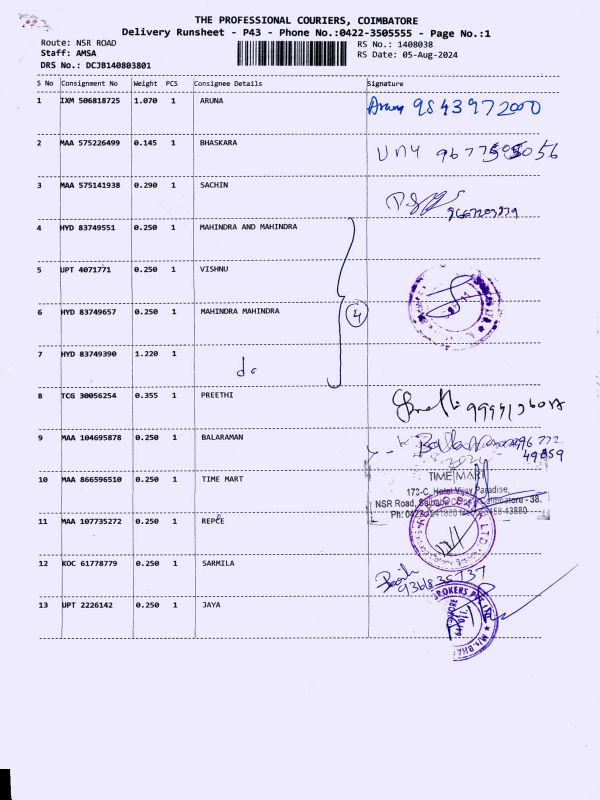 THE PROFESSIONAL COURIERS, COIMBATORE
Delivery Runsheet - P43 - Phone No.:0422-3505555 - Page No.:1
Route: NSR ROAD
Staff: AMSA
DRS No.: DCJB140803801
RS No.: 1408038
RS Date: 05-Aug-2024
S No Consignment No Weight PCS Consignee Details Signature
1 IXM 506818725 1.070 1 ARUNA 9843972000
2 MAA 575226499 0.145 1 BHASKARA
3 MAA 575141938 0.290 1 SACHIN
4 HYD 83749551 0.250 1 MAHINDRA AND MAHINDRA
5 UPT 4071771 0.250 1 VISHNU
6 HYD 83749657 0.250 1 MAHINDRA MAHINDRA 4
7 HYD 83749390 1.220 1
do
8 TCG 30056254 0.355 1 PREETHI
9 MAA 104695878 0.250 1 BALARAMAN
10 MAA 866596510 0.250 1 TIME MART
TIME MART
173-C, Hotel Vijay Paradise,
NSR Road, Coimbatore - 38.
11 MAA 107735272 0.250 1 REPCE
12 KOC 61778779 0.250 1 SARMILA
13 UPT 2226142 0.250 1 JAYA
BROKERS PVT LTD